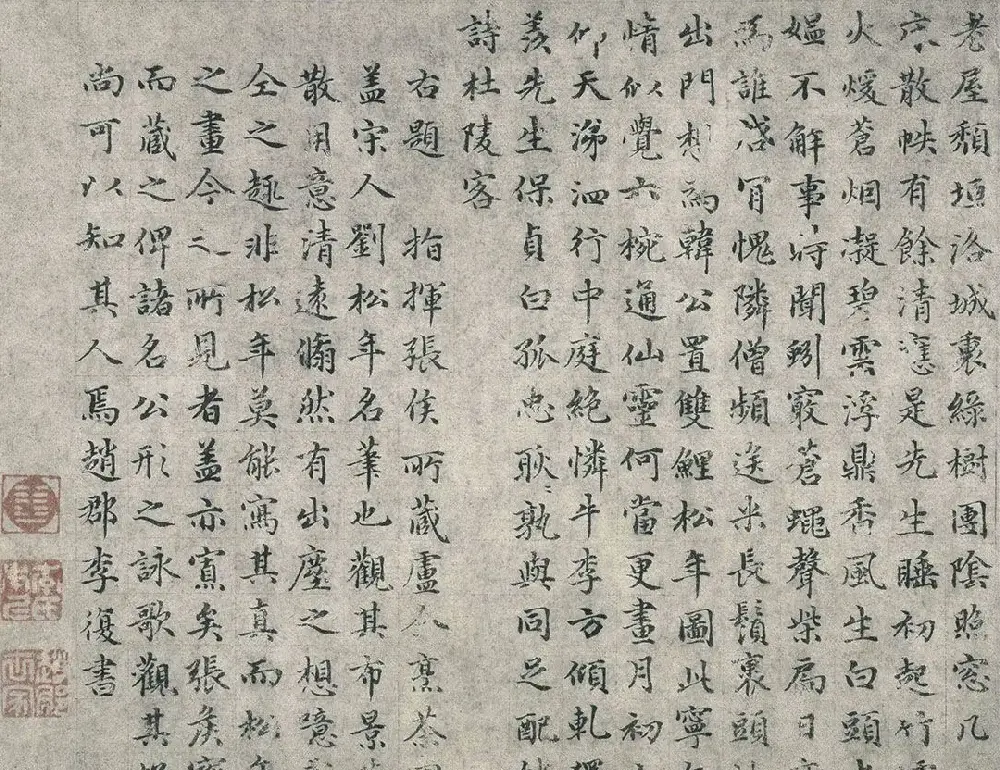 老屋頹垣洛城裏綠樹團陰照窓几
散帙有餘清窻是先生睡初起竹
火煖蒼烟凝碧雲浮鼎香風生白頭
媼不解事時聞蚓竅蒼蠅聲柴扃日
為誰啓肎愧隣僧頻送米長鬚裹頭
出門想為韓公置雙鯉松年圖此寧
情似覺六椀通仙靈何當更畫月初
仰天涕泗行中庭絕憐牛李方傾軋
羨先生保貞白孤忠耿耿孰與同足配
詩杜陵客
右題指揮張侯所藏盧仝烹茶
蓋宋人劉松年名筆也觀其布景
散用意清遠翛然有出塵之想噫
仝之趣非松年莫能寫其真而松年
之畫今之所見者蓋亦寡矣張侯寶
而藏之俾諸名公形之詠歌觀其
尚可以知其人焉趙郡李復書